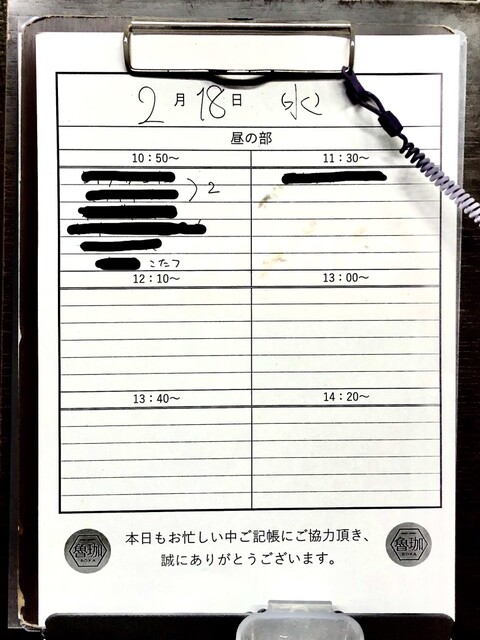 2月18日 (水)
昼の部
10：50～ 11：30～
)2
こたつ
12：10～ 13：00～
13：40～ 14：20～
本日もお忙しい中ご記帳にご協力頂き、
誠にありがとうございます。
魯珈 魯珈
ROKA ROKA